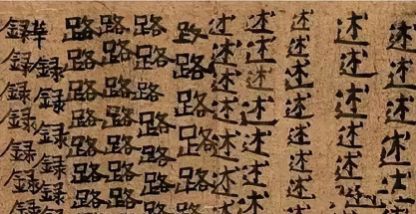 述述述述述
述述述述述述
述述述述述述述
述述述述述述述
述述述述述述述
路路路路路路
路路路路路路路
路路路路路路路
路路路路路路路
録録録録録
録録録録録録録